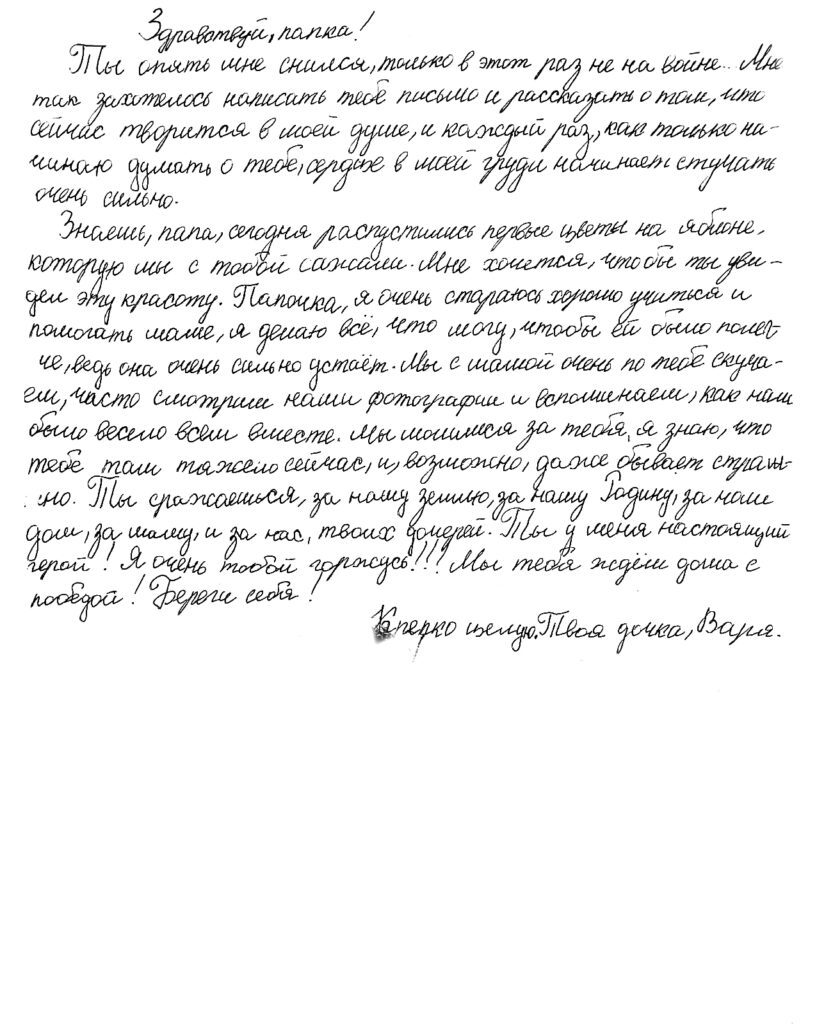 Здравствуй, папка!
Ты опять мне снился, только в этот раз не на войне.. Мне
так захотелось написать тебе письмо и рассказать о том, что
сейчас творится в моей душе, и каждый раз, как только на-
чинаю думать о тебе, сердце в моей груди начинает стучать
очень сильно.
Знаешь, папа, сегодня распустились первые цветы на яблоне,
которую мы с тобой сажали. Мне хочется, чтобы ты уви-
дел эту красоту. Папочка, я очень стараюсь хорошо учиться и
помогать маме, я делаю всё, что могу, чтобы ей было полег-
че, ведь она очень сильно устаёт. Мы с мамой очень по тебе скуча-
ем, часто смотрим наши фотографии и вспоминаем, как нам
было весело всем вместе. Мы молимся за тебя, я знаю, что
тебе там тяжело сейчас, и, возможно, даже бывает страш-
но. Ты сражаешься, за нашу землю, за нашу Родину, за наш
дом, за маму, и за нас, твоих дочерей. Ты у меня настоящий
герой! Я очень тобой горжусь!!! Мы тебя ждём дома с
победой! Береги себя!
Крепко целую. Твоя дочка, Варя.